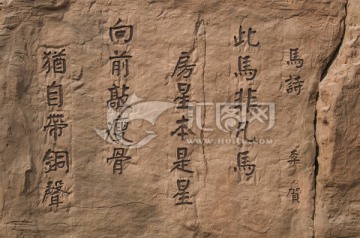 馬詩
李賀
此馬非凡馬
房星本是星
向前敲瘦骨
猶自帶銅聲
汇图网